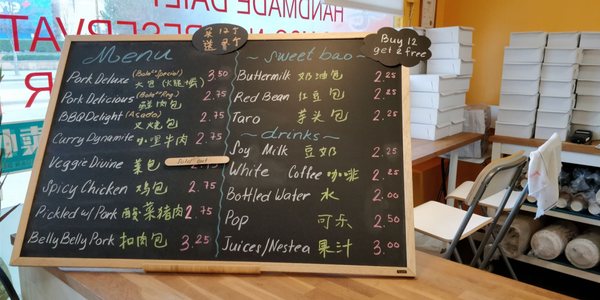 HANDMADE DAILY
RESERVAT
买12个
送2个
Buy 12
get 2 Free
Menu
Pork Deluxe (Bao "Special) 3.50
大包
Pork Delicious (Bao "Reg) 2.75
鲜肉包
BBQ Delight (Asado) 2.75
叉烧包
Curry Dynamite 咖喱牛肉 2.75
Veggie Divine 菜包 2.75
Sold out
Spicy Chicken 鸡包 2.75
Pickled w/ Pork 酸菜猪肉 2.75
Belly Belly Pork 扣肉包 3.25
~ sweet bao ~
Buttermilk 奶油包 2.25
Red Bean 红豆包 2.25
Taro 芋头包 2.25
~ drinks ~
Soy Milk 豆奶 2.25
White Coffee 咖啡 2.25
Bottled Water 水 2.00
Pop 可乐 2.50
Juices/Nestea 果汁 3.00